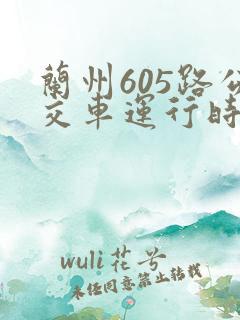 蘭州605路公
交車運行時
wuli花兮
未经同意禁止转载